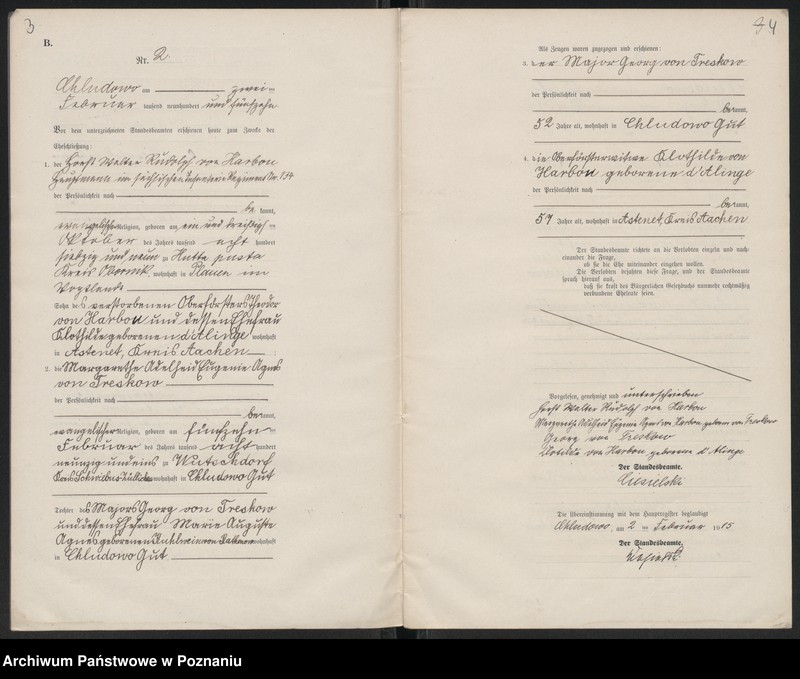 3
B.
Nr. 2
Chludowo am zwei ten
Februar tausend neunhundert und fünfzehn
Vor dem unterzeichneten Standesbeamten erschienen heute zum Zwecke der
Eheschließung:
1. der Horst Walter Rudolf von Harbou
Hauptmann im sächsischen Infanterie Regiment Nr. 134
der Persönlichkeit nach
be kannt,
evangelischer Religion, geboren am ein und dreißigsten
Oktober des Jahres tausend acht hundert
siebzig und neun zu Hutta pusta
Kreis Obornik, wohnhaft in Plauen im
Vogtlande
Sohn des verstorbenen Oberförsters Theodor
von Harbou und dessen Ehefrau
Klothilde geborenen d'Alinge wohnhaft
in Astenet, Kreis Aachen
2. die Margarethe Adelheid Eugenie Agnes
von Treskow
der Persönlichkeit nach
be kannt,
evangelischer Religion, geboren am fünfzehn ten
Februar des Jahres tausend acht hundert
neunzig und eins zu
wohnhaft in Chludowo Gut
Tochter des Majors Georg von Treskow
und dessen Ehefrau Marie Auguste
Agnes geborenen von wohnhaft
in Chludowo Gut
34
Als Zeugen waren zugezogen und erschienen:
3. der Major Georg von Treskow
der Persönlichkeit nach
be kannt,
52 Jahre alt, wohnhaft in Chludowo Gut
4. die Oberförsterwitwe Klothilde von
Harbou geborene d'Alinge
der Persönlichkeit nach
be kannt,
57 Jahre alt, wohnhaft in Astenet, Kreis Aachen
Der Standesbeamte richtete an die Verlobten einzeln und nach-
einander die Frage,
ob sie die Ehe miteinander eingehen wollen.
Die Verlobten bejahten diese Frage, und der Standesbeamte
sprach hierauf aus,
daß sie kraft des Bürgerlichen Gesetzbuchs nunmehr rechtmäßig
verbundene Eheleute seien.
Vorgelesen, genehmigt und unterschrieben
Horst Walter Rudolf von Harbou
Margarethe Adelheid Eugenie Agnes von Harbou geborene von Treskow
Georg von Treskow
Klotilde von Harbou geborene d'Alinge
Der Standesbeamte.
Ciesielski
Die Übereinstimmung mit dem Hauptregister beglaubigt
Chludowo, am 2 ten Februar 1915
Der Standesbeamte.
Archiwum Państwowe w Poznaniu